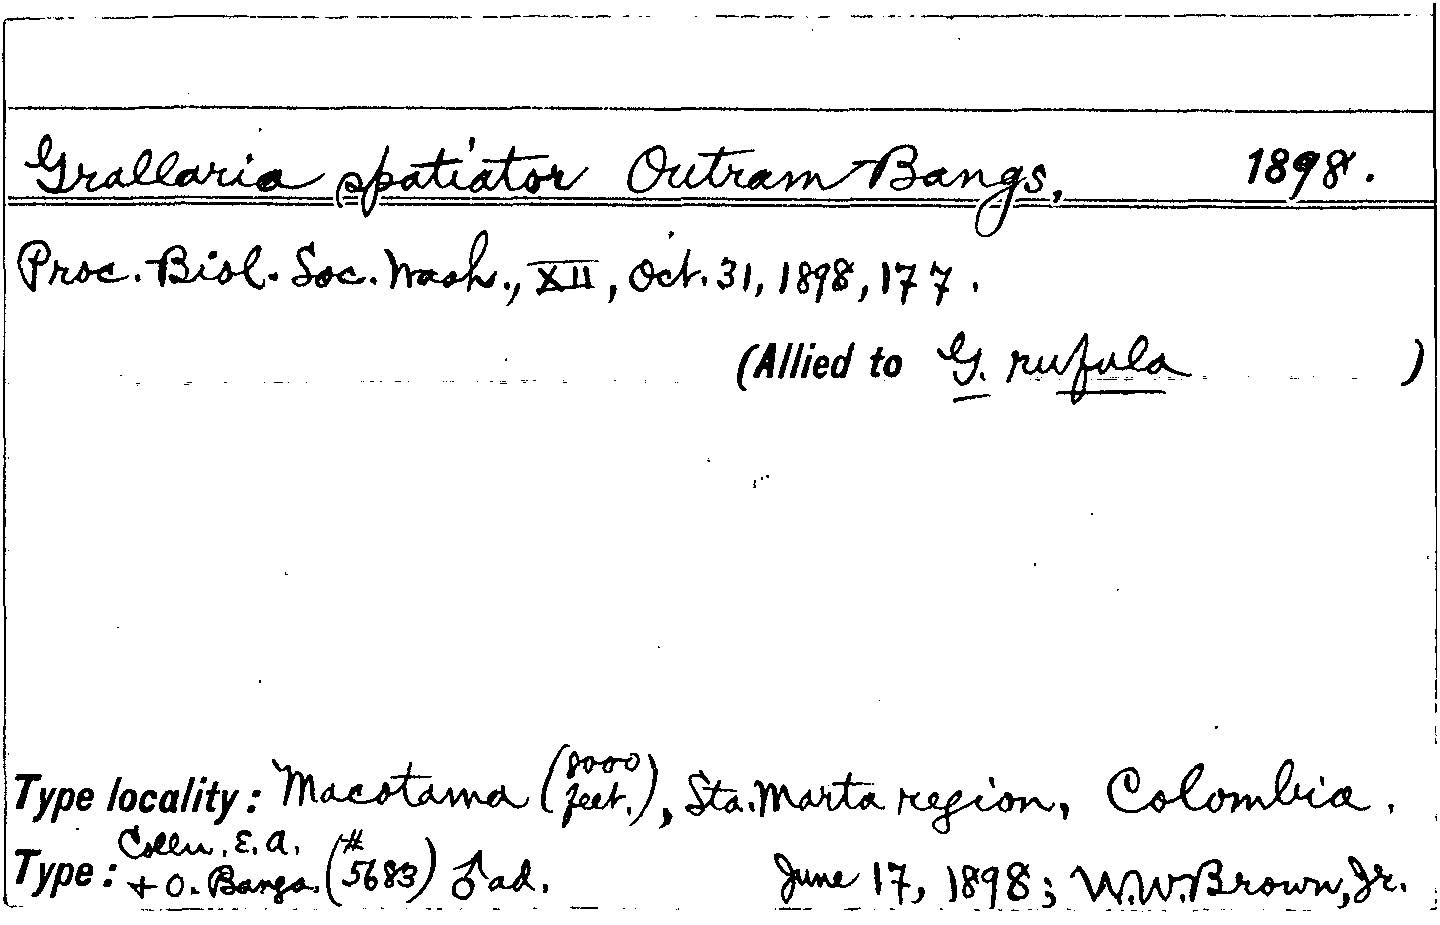 Grallaria spatiator Outram Bangs, 1898.
Proc. Biol. Soc. Wash., XII, Oct. 31, 1898, 177.
(Allied to G. rufula )
Type locality: Macotama (8000 feet.), Sta. Marta region, Colombia.
Type: Colln. E. A. & O. Bangs. (# 5683) ♂ ad. June 17, 1898; W.W. Brown, Jr.